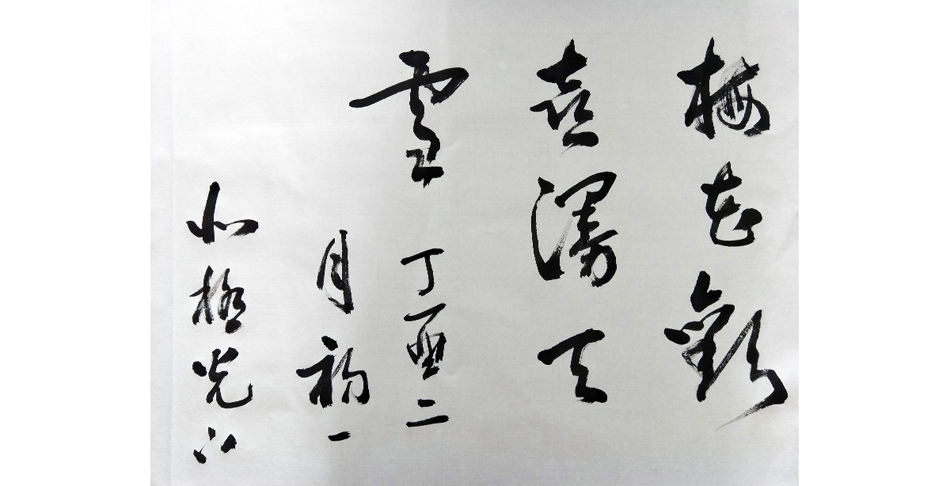 梅花歡
喜漫天
雪 丁酉二
月初一
北極光江